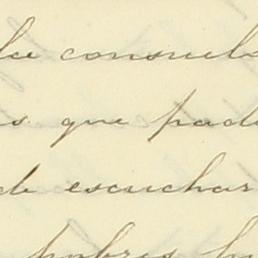 la consul
s que pad
de escuchar
pobres h